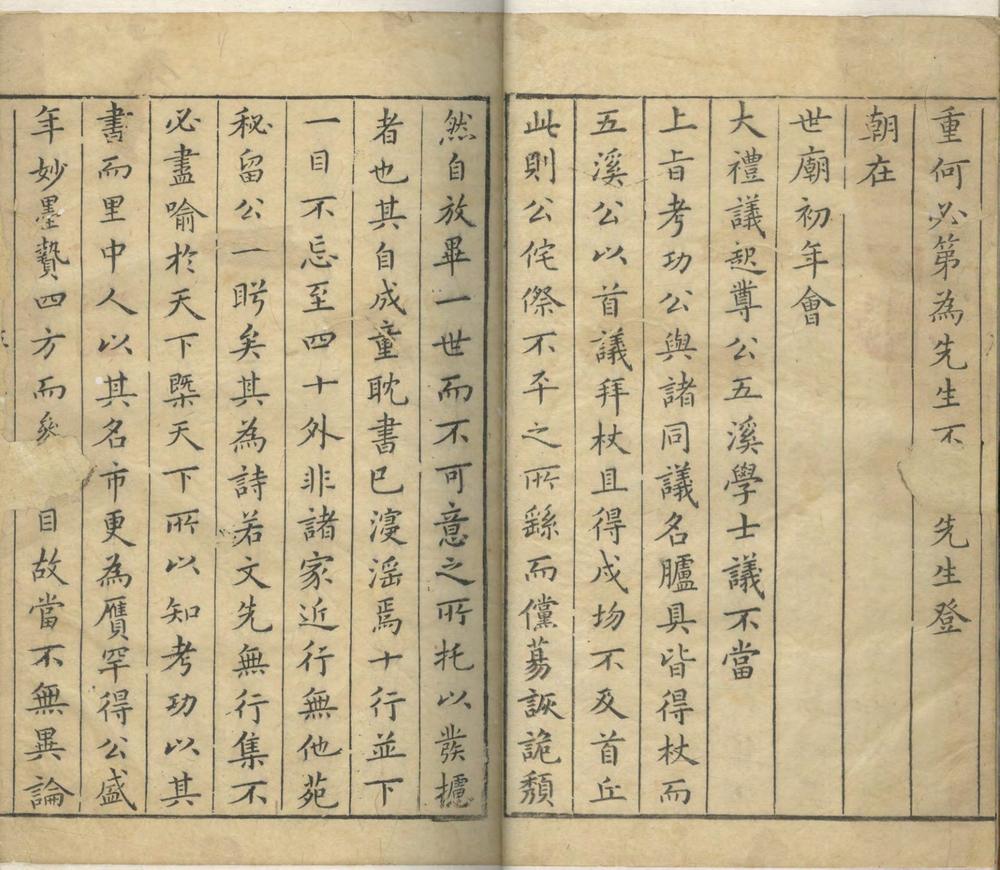 重何必第為先生不先生登
朝在
世廟初年會
大禮議起尊公五溪學士議不當
上旨考功公與諸同議名臚具皆得杖而
五溪公以首議拜杖且得戍均不及首丘
此則公侘傺不平之所繇而儻蕩詼詭頹
然自放畢一世而不可意之所托以發攄
者也其自成童耽書已寖淫焉十行並下
一目不忘至四十外非諸家近行無他苑
秘留公一盻矣其為詩若文先無行集不
必盡喻於天下槩天下所以知考功以其
書而里中人以其名市更為贗罕得公盛
年妙墨贄四方而目故當不無異論